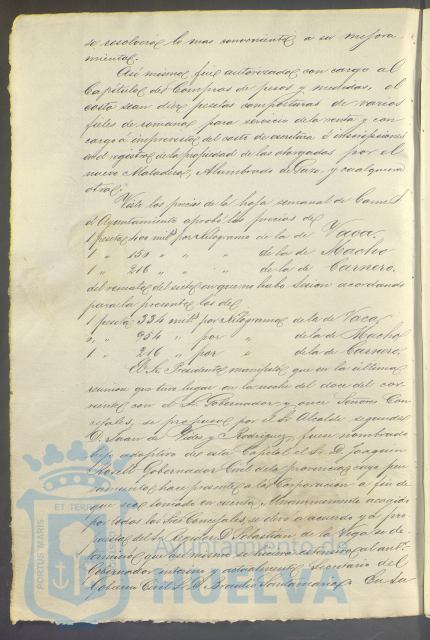 se resolverá lo mas conveniente a su mejora-
miento.
Asi mismo fué autorizado con cargo al
Capítulo de Compras de pesos y medidas, el
costo de diez pesetas composturas de varios
fieles de romana para servicio de la renta y con
cargo á imprevistos del costo de escritura é inscripciones
en el registro de la propiedad de las otorgadas por el
nuevo Matadero, Alumbrado de Gas, y cualquiera
otra.
Visto los precios de la hoja semanal de Carnes
el Ayuntamiento aprobó los precios de
1 peseta 400 mil.s por Kilogramo de la de Vaca,
1 " 150 " " " de la de Macho
1 " 216 " " " de la de Carnero,
del remate del siete en que no hubo sesion acordando
para la presente los de
1 peseta 334 mil.s por Kilogramo de la de Vaca
", 954 " por " de la de Macho
1 " 216 " por " de la de Carnero,
El Sr. Presidente manifestó que en la última
reunion que tuvo lugar en la noche del doce del cor-
riente con el Sr. Gobernador y once Señores Con-
cejales, se propuso por el Sr. Alcalde segundo
D. Juan de Vides y Rodriguez, fuese nombrado
hijo adoptivo de esta Capital el Sr. D. Joaquin
Rosell Gobernador Civil de la provincia, cuyo pen-
samiento hace presente á la Corporacion á fin de
que sea tomado en cuenta. Unanimemente acogido
por todos los Sres Concejales se elevó á acuerdo y á pro-
puesta del Sr. Regidor D. Sebastian de la Vega se de-
terminó que del mismo se hiciera estensiva al ant.r
Gobernador interino y actualmente Secretario del
Gobierno Civil Sr. D. Braulio Santamaria. En su
PORTUS MARIS
ET TERRAE
Ayuntamiento de
HUELVA